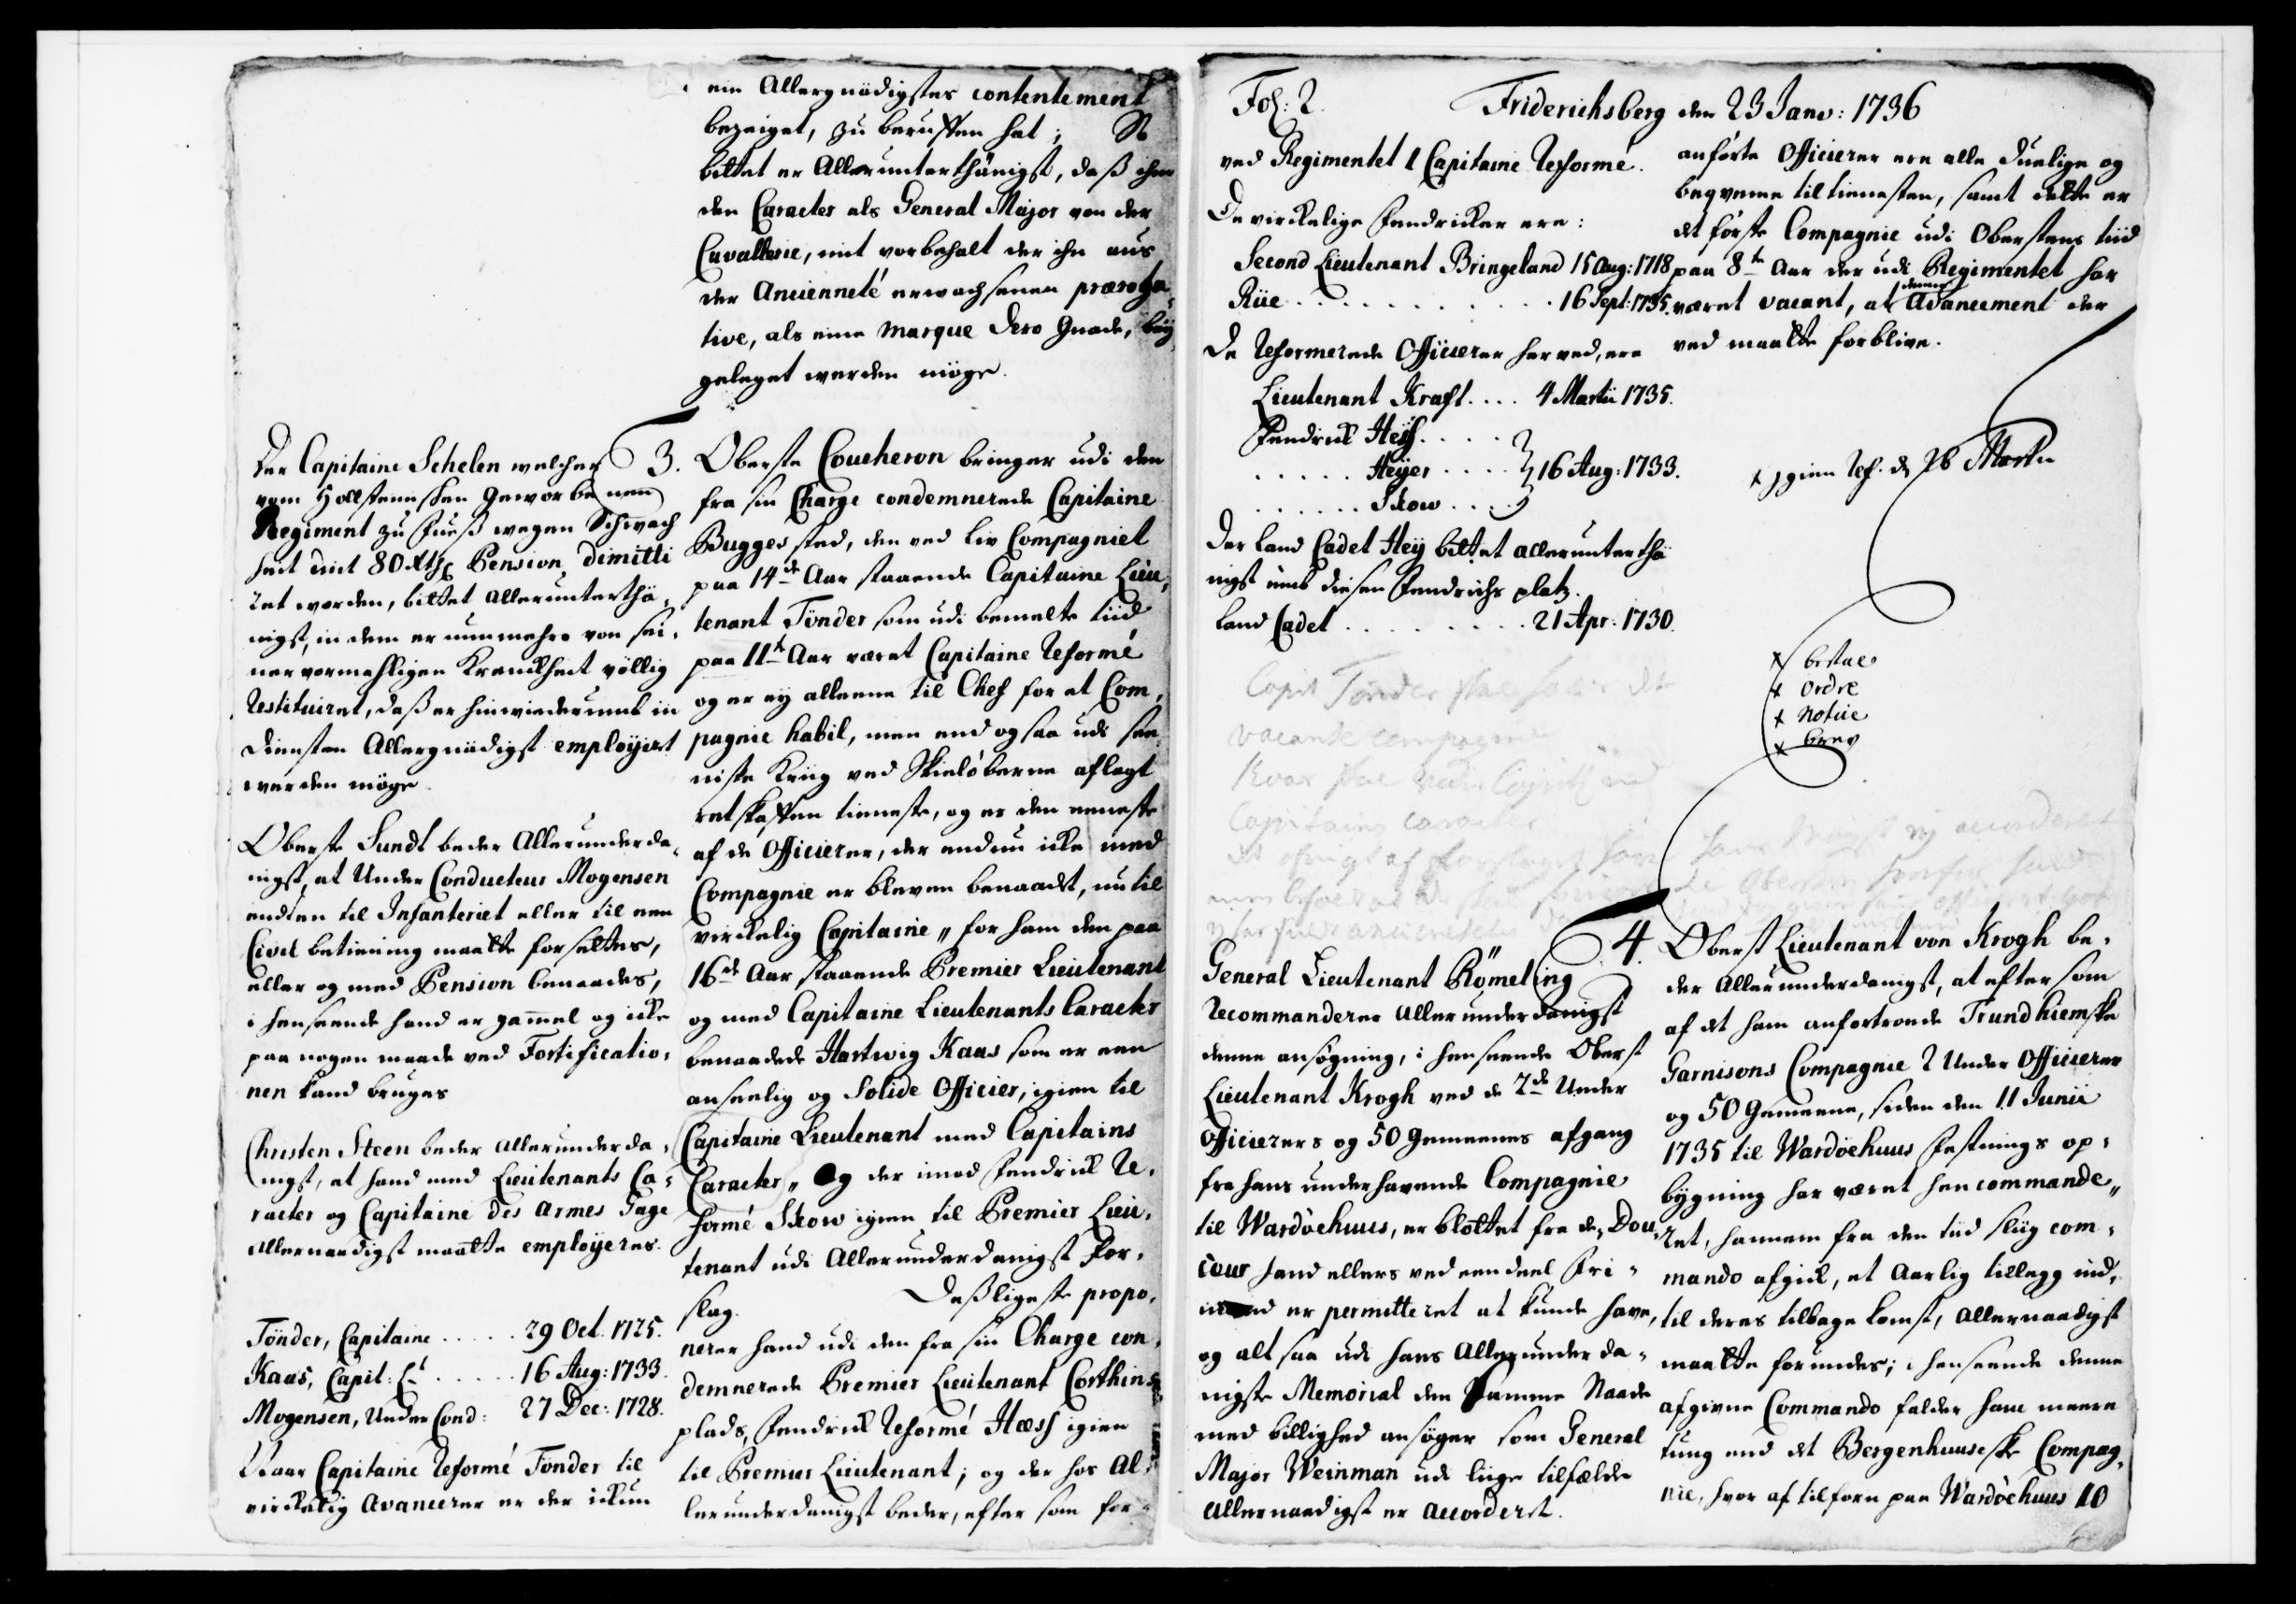 ein Allergnädigstes contentement
bezeiget, zu beruffen hat; So
bittet er Allerunterthänigst, daß ihm
den Caracter als General Major von der
Cavallerie, mit vorbehalt der ihn aus
der Ancienneté erwachsenen præroga-
tive, als eine marque dero Gnade, bey
geleget werden möge.
Der Capitaine Schelen welcher
vom Hollsteinschen Geworbenen
Regiment zu Fueß wegen Schwach
heit mit 80 Rthl Pension dimitti
ret worden, bittet allerunterthä-
nigst, in dem er nunmehro von sei-
ner vormahligen Kranckheit völlig
restituiret, daß er hinwiederumb in
Diensten Allergnädigst employiert
werden möge.
Oberste Sundt beder Allerunderda-
nigst, at Under Conducteur Mogensen
endten til Infanteriet eller til een
Civil betiening maatte forsættes,
eller og med Pension benaades,
i henseende hand er gammel og icke
paa nogen maade ved Fortificatio-
nen kand bruges
Christen Steen beder allerunderda-
nigst, at hand med Lieutenants Ca-
racter og Capitaine des Armes Gage
allernaadigst maatte employeres.
Tönder, Capitaine ..... 29 Oct. 1725.
Kaas, Capit: Lt ..... 16 Aug: 1733.
Mogensen, Under Cond: 27 Dec: 1728.
Naar Capitaine Reformé Tönder til
virckelig avancerer er der ickun
3. Oberste Coucheron bringer udi den
fra sin Charge condemnerede Capitaine
Bugges sted, den ved Liv Compagniet
paa 14de Aar staaende Capitaine Lieu-
tenant Tönder som udi bemelte tiid
paa 11te Aar været Capitaine Reformé
og er ey alleene til Chef for et Com-
pagnie habil, men end og saa udi see-
niste Kriig ved Skielöberne aflagt
retskaffen tieneste, og er den eeneste
af de Officierer, der endnu icke med
Compagnie er bleven benaadet, nu til
virckelig Capitaine, for ham den paa
16de Aar staaende Premier Lieutenant
og med Capitaine Lieutenants Caracter
benaadede Hartwig Kaas som er een
anseelig og Solide Officier, igien til
Capitaine Lieutenant med Capitains
Caracter, Og der imod Fendrick Re-
formé Skow igien til Premier Lieu-
tenant udi Allerunderdanigst For-
slag. Desligeste propo-
nerer hand udi den fra sin Charge con-
demnerede Premier Lieutenant Corthins
plads, Fendrick Reformé Hæss igien
til Premier Lieutenant; og der hos Al-
lerunderdanigst beder, efter som for-
Fol: 2. Friderichsberg den 23 Janv: 1736
ved Regimentet 1 Capitaine Reformé.
De virckelige Fendricker ere:
Second Lieutenant Bringeland 15 Aug: 1718
Riie ............ 16 Sept: 1735.
De Reformerede Officierer herved, ere
Lieutenant Kraft .... 4 Martii 1735.
Fendrick Heÿs ....
..... Heÿer .... 16 Aug: 1733.
...... Skow ....
Der Land Cadet Heÿ bittet allerunterthä
nigst umb diesen Fendrichs platz.
Land Cadet ......... 21 Apr: 1730.
Capit Tönder skal have det
vacante compagnie
Kaas skal være
Capitains caracter
anförte Officierer ere alle duelige og
beqvemme til tienesten, samt dette er
det förste Compagnie udi Oberstens tiid
paa 8te Aar der udi Regimentet har
været vacant, at denne Avancement der
ved maatte forblive.
+ igien Ref. d 26 Martii
+ bestal
+ ordre
+ notice
+ brev
General Lieutenant Römeling
recommanderer allerunderdanigst
denne ansögning, i henseende Oberst
Lieutenant Krogh ved de 2de Under
Officierers og 50 Gemeenes afgang
fra hans underhavende Compagnie
til Wardöehuus, er blottet fra de Dou-
ceur hand ellers ved een deel Fri-
mænd er permitteret at kunde have,
og alt saa udi hans Allerunderda-
nigste Memorial den samme Naade
med billighed ansöger som General
Major Weinman udi liige tilfælde
Allernaadigst er accorderet.
4. Oberst Lieutenant von Krogh be-
der Allerunderdanigst, at efter som
af det ham anfortroede Trundhiemske
Garnisons Compagnie 2 Under Officierer
og 50 Gemeene, siden den 11 Junii
1735 til Wardöehuus Festnings op-
bygning har været hen commande-
ret, hannem fra den tiid sliig com-
mando afgick, et Aarlig tillegg ind-
til deres tilbage komst, allernaadigst
maatte forundes; i henseende denne
afgivne Commando falder ham meere
tung end det Bergenhuuseske Compag-
nie, hvor af tilforn paa Wardöehuus 10